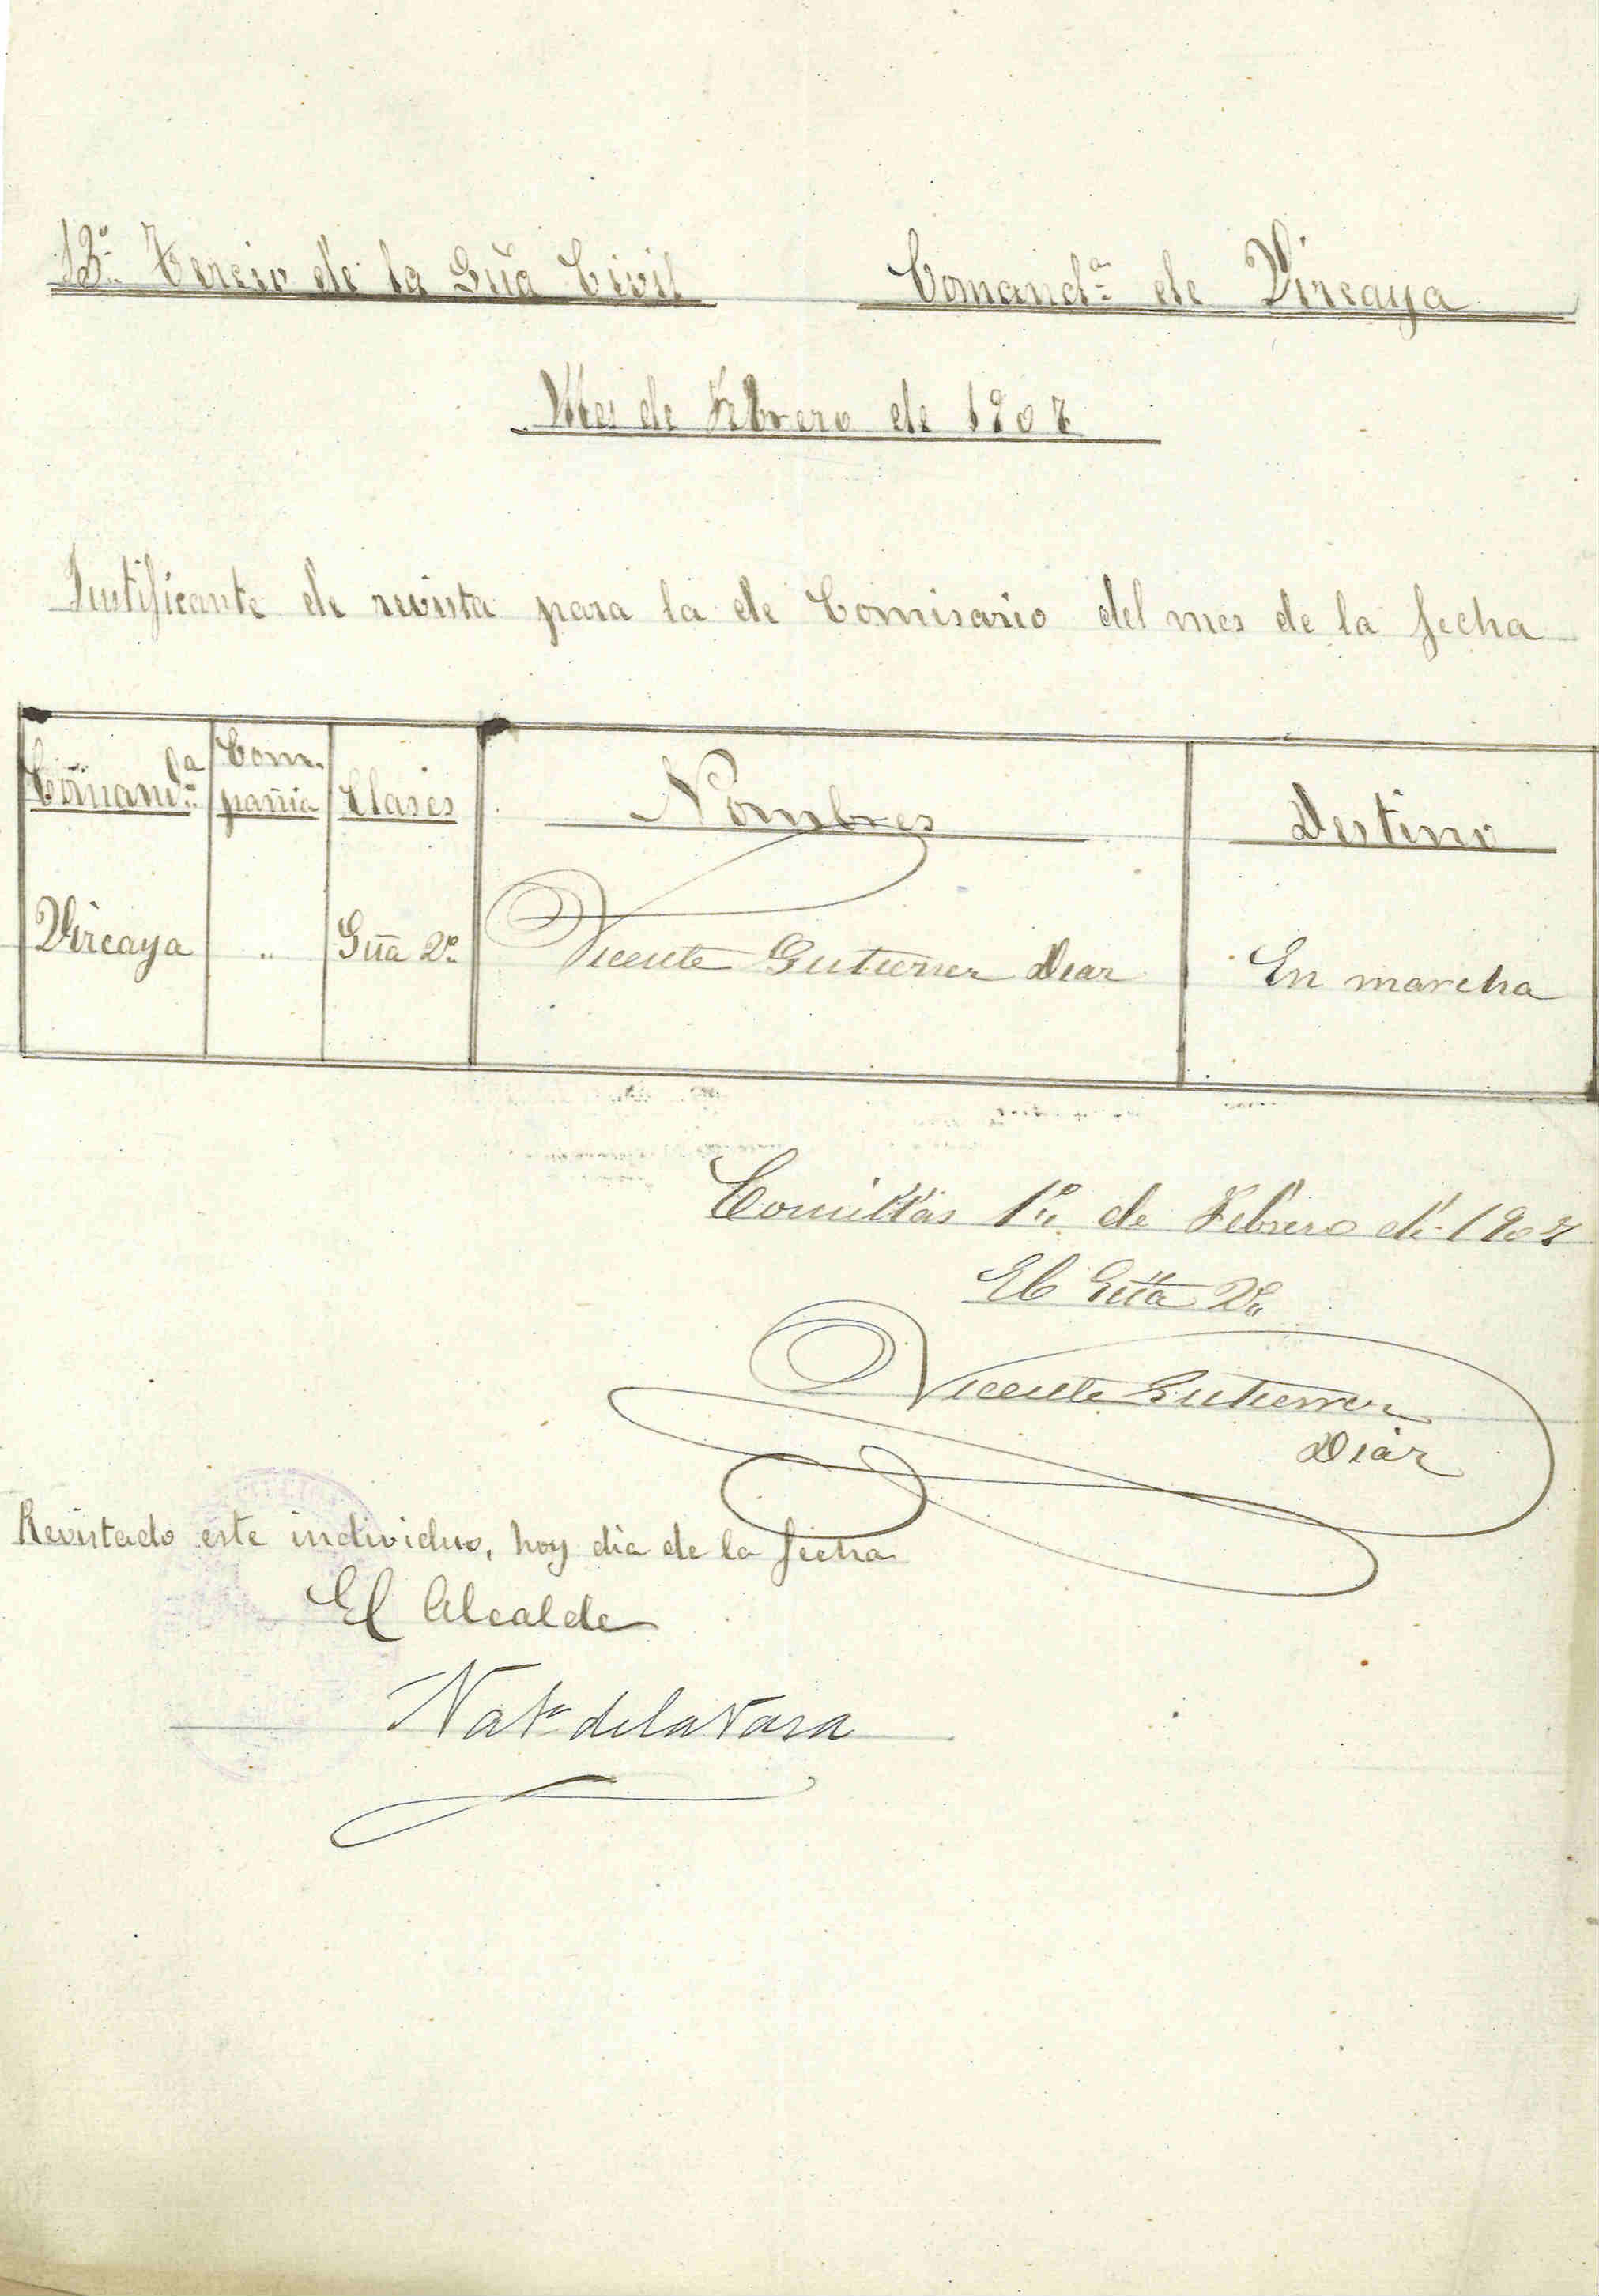 13º Tercio de la Gũa Civil
Comandª de Vizcaya
Mes de Febrero de 1907
Justificante de revista para la de Comisario del mes de la fecha
Comandª
Com-
pañia
Clases
Nombres
Destino
Vizcaya
"
Gũa 2º
Vicente Gutierrez Diaz
En marcha
Comillas 1º de Febrero de 1907
El Gũa 2º
Vicente Gutierrez
Diaz
Revistado este individuo, hoy dia de la fecha
El Alcalde
de la Vara